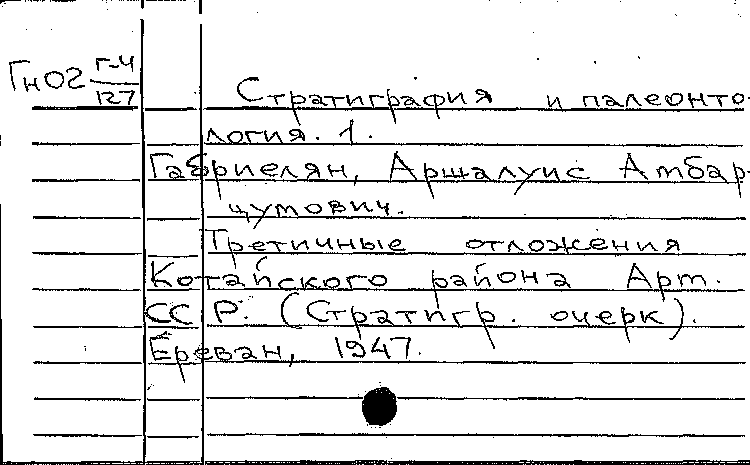 ГнО2 Г-4/127
Стратиграфия и палеонто-
логия. 1.
Габриелян, Аршалуис Амбар-
цумович.
Третичные отложения
Котайского района Арм.
ССР. (Стратигр. очерк).
Ереван, 1947.